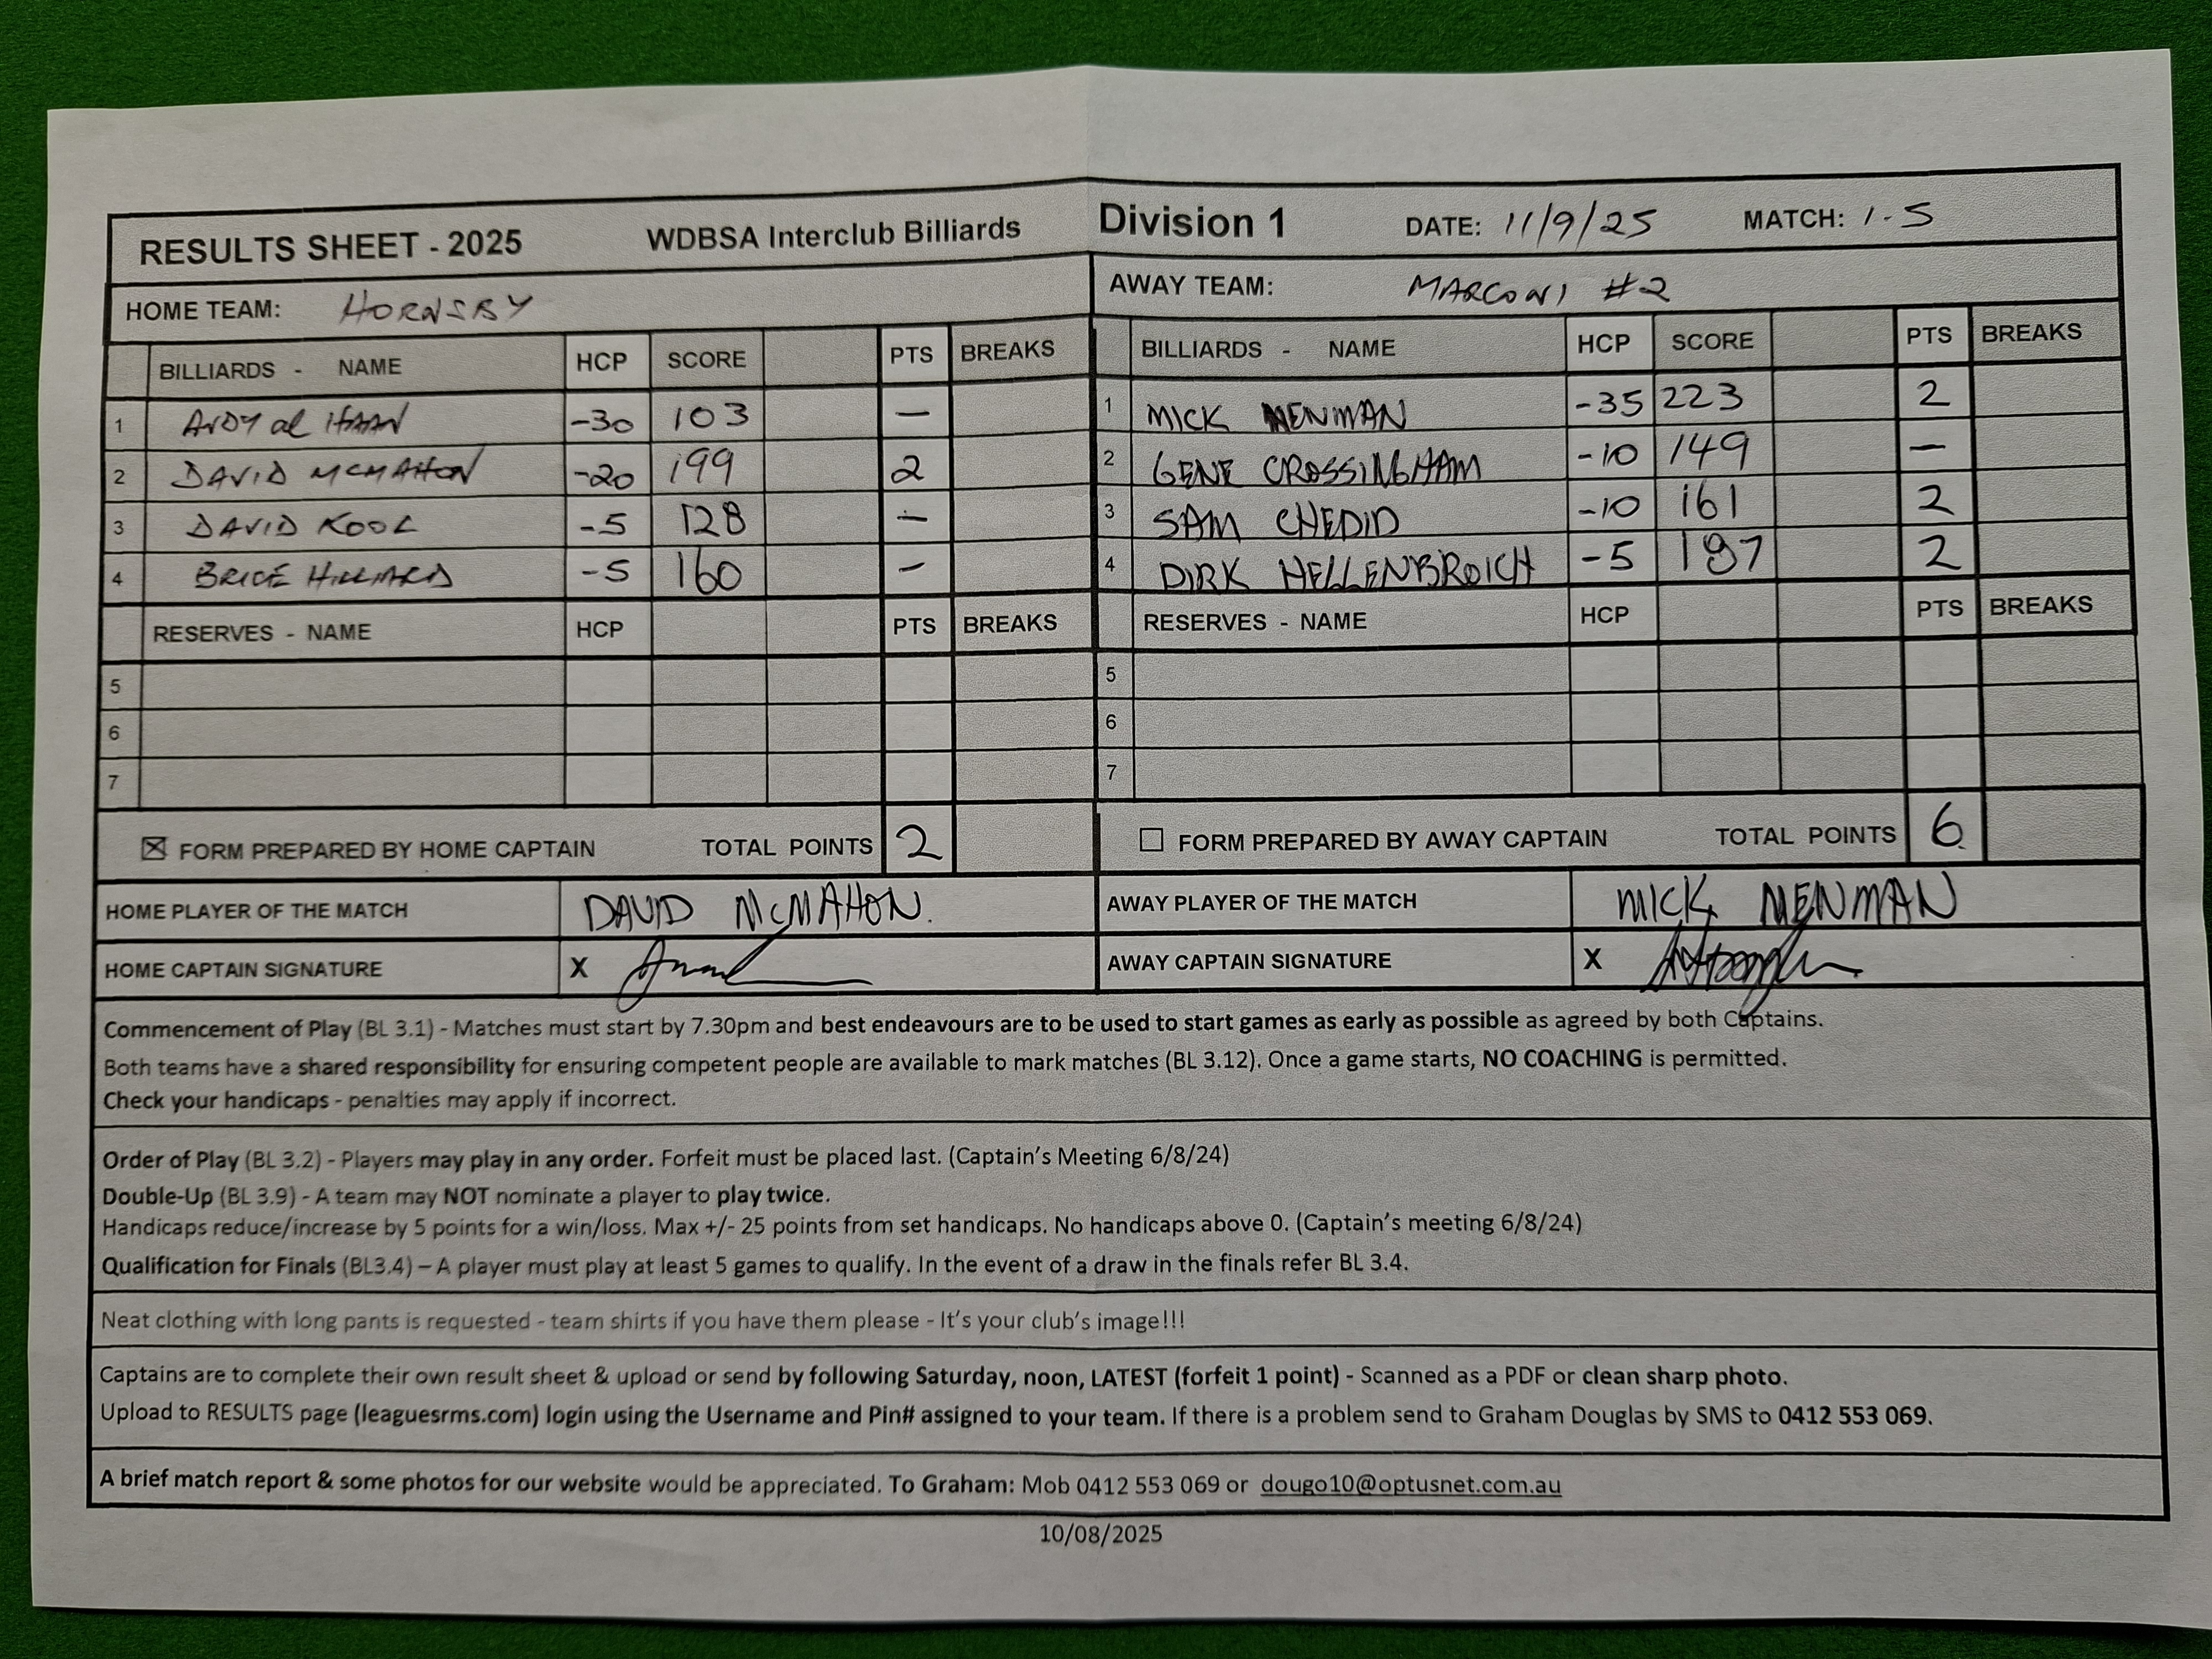 RESULTS SHEET - 2025 WDBSA Interclub Billiards Division 1 DATE: 11/9/25 MATCH: 1-5
HOME TEAM: HORNSBY AWAY TEAM: MARCONI #2
BILLIARDS - NAME HCP SCORE PTS BREAKS BILLIARDS - NAME HCP SCORE PTS BREAKS
1 -30 103 — 1 MICK MENMAN -35 223 2
2 DAVID MCMAHON -20 199 2 2 GENE CROSSINGHAM -10 149 —
3 DAVID KOOL -5 128 — 3 SAM CHEDID -10 161 2
4 BRICE HILLIARD -5 160 — 4 DIRK HELLENBROICH -5 197 2
RESERVES - NAME HCP PTS BREAKS RESERVES - NAME HCP PTS BREAKS
5 5
6 6
7 7
☒ FORM PREPARED BY HOME CAPTAIN TOTAL POINTS 2 ☐ FORM PREPARED BY AWAY CAPTAIN TOTAL POINTS 6
HOME PLAYER OF THE MATCH DAVID McMAHON. AWAY PLAYER OF THE MATCH MICK MENMAN
HOME CAPTAIN SIGNATURE X AWAY CAPTAIN SIGNATURE X
Commencement of Play (BL 3.1) - Matches must start by 7.30pm and best endeavours are to be used to start games as early as possible as agreed by both Captains.
Both teams have a shared responsibility for ensuring competent people are available to mark matches (BL 3.12). Once a game starts, NO COACHING is permitted.
Check your handicaps - penalties may apply if incorrect.
Order of Play (BL 3.2) - Players may play in any order. Forfeit must be placed last. (Captain's Meeting 6/8/24)
Double-Up (BL 3.9) - A team may NOT nominate a player to play twice.
Handicaps reduce/increase by 5 points for a win/loss. Max +/- 25 points from set handicaps. No handicaps above 0. (Captain's meeting 6/8/24)
Qualification for Finals (BL3.4) – A player must play at least 5 games to qualify. In the event of a draw in the finals refer BL 3.4.
Neat clothing with long pants is requested - team shirts if you have them please - It's your club's image!!!
Captains are to complete their own result sheet & upload or send by following Saturday, noon, LATEST (forfeit 1 point) - Scanned as a PDF or clean sharp photo.
Upload to RESULTS page (leaguesrms.com) login using the Username and Pin# assigned to your team. If there is a problem send to Graham Douglas by SMS to 0412 553 069.
A brief match report & some photos for our website would be appreciated. To Graham: Mob 0412 553 069 or dougo10@optusnet.com.au
10/08/2025